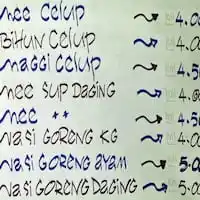 mee celup → 4.0
BiHUN Celup → 4.0
maggi celup → 4.5
mee SUP DAGING → 4.0
mee ++ → 4.50
NASi GORENG KG → 4.0
NASi GORENG AYAM → 5.0
NASi GORENG DAGING → 5.0